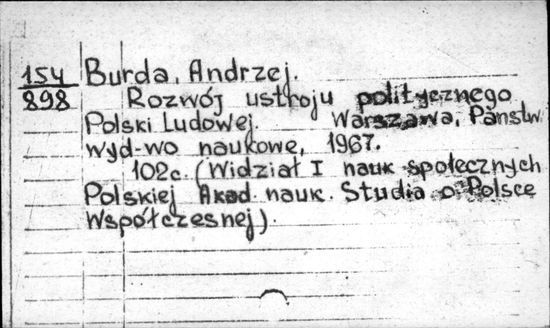 154
898
Burda, Andrzej.
Rozwój ustroju politycznego
Polski Ludowej. Warszawa, Państw.
wyd-wo naukowe, 1967.
102c. (Widział I nauk społecznych
Polskiej Akad. nauk. Studia o Polsce
Współczesnej).